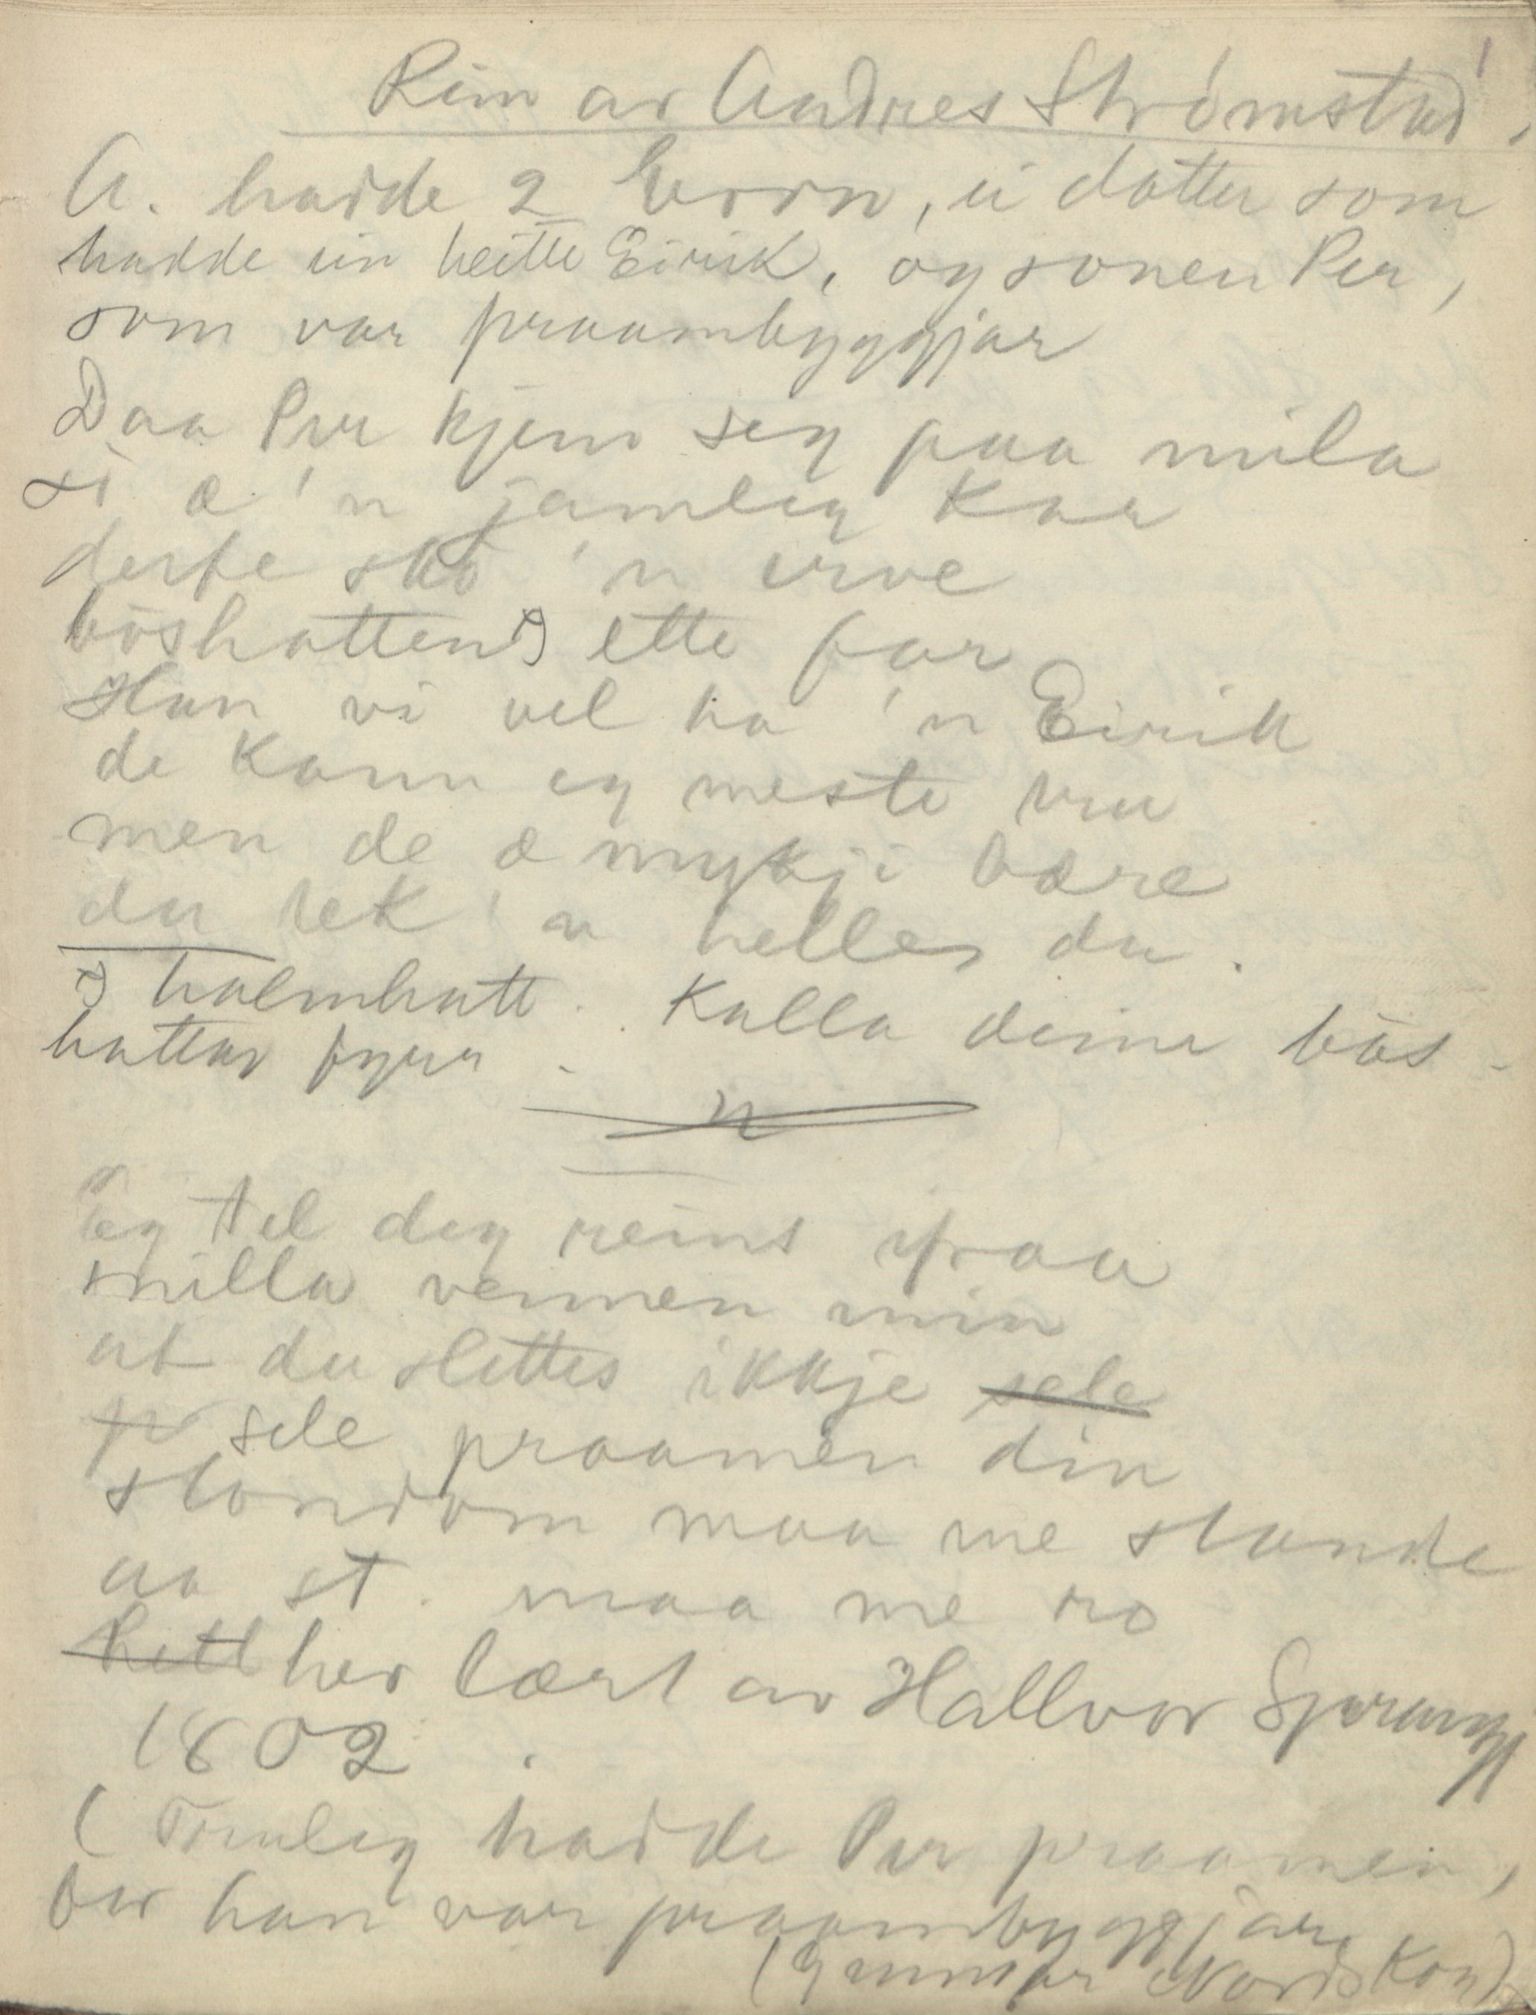 1
Rim av Andres Strømstad.
A. hadde 2 born, ei dotter som
hadde ein heitte Eirik, og sonen Per,
som var praambyggjar
Daa Per kjem seg paa mila
so æ 'n jamleg kar
derfe sko 'n erve
böshatten ette far
Han vi vel ha 'n Eirik
de kann eg meste tru
men de æ mykji bære
du tek 'n helles du.
halmhatt. Kalla deime bös-
hattar fyrr.
Eg tel deg reint ifraa
snilla vennen min
at du slettes ikkje sele
sele praamen din
stondom maa me stande
aa st. maa me ro
her lært av Hallvor
1802.
(Truleg hadde Per praamen,
for han var praambyggjar,
(Gunnar Nordskog)